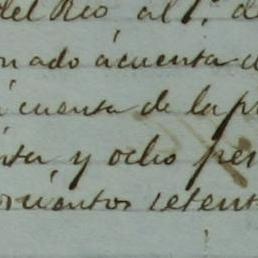 del Rio al 1º d
onado á cuenta d
á cuenta de la pr
nta y ocho pe
cientos setent